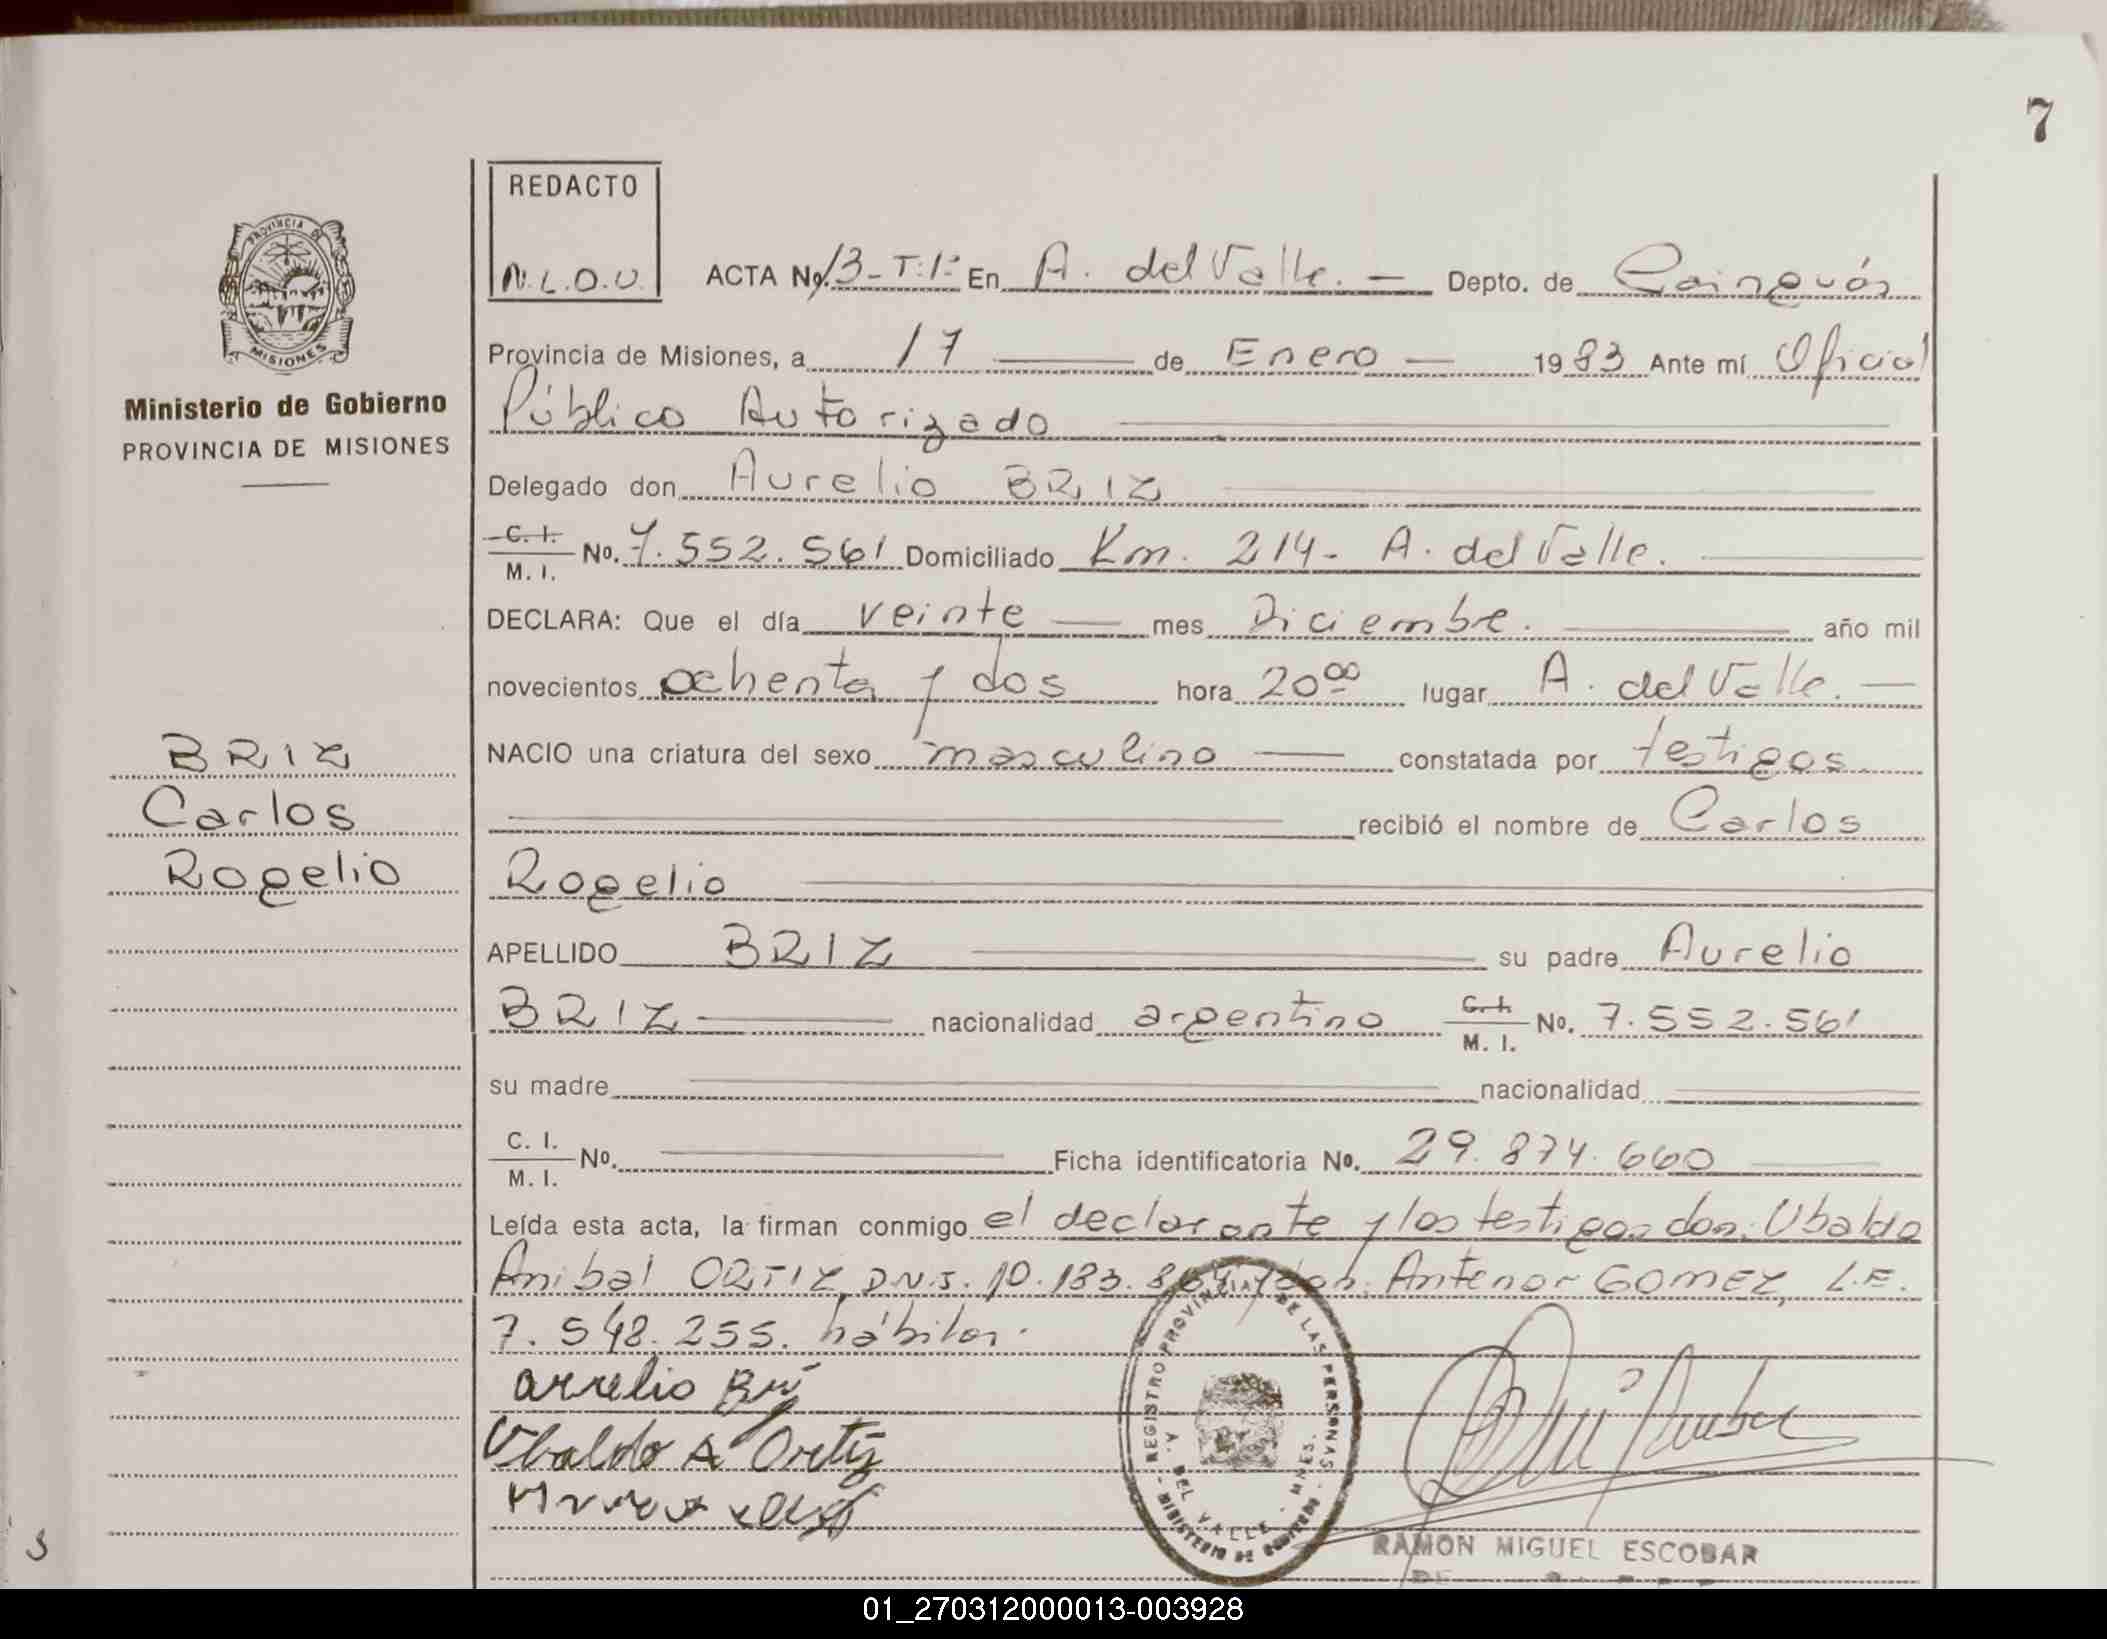 7
REDACTO
N.L.O.U.
ACTA No. 13-T:1º En A. del Valle. — Depto. de Cainguás
PROVINCIA DE
MISIONES
Provincia de Misiones, a 17 — de Enero — 1983 Ante mí Oficial
Ministerio de Gobierno
PROVINCIA DE MISIONES
Público Autorizado
Delegado don Aurelio BRIZ
C. I.
M. I. No. 7.552.561 Domiciliado Km. 214- A. del Valle.
DECLARA: Que el día veinte — mes Diciembre. — año mil
novecientos ochenta y dos hora 20⁰⁰ lugar A. del Valle. —
BRIZ
Carlos
Rogelio
NACIO una criatura del sexo masculino — constatada por testigos
recibió el nombre de Carlos
Rogelio
APELLIDO BRIZ su padre Aurelio
BRIZ — nacionalidad argentino C. I.
M. I. No. 7.552.561
su madre — nacionalidad —
C. I.
M. I. No. — Ficha identificatoria No. 29.874.660 —
Leída esta acta, la firman conmigo el declarante y los testigos don: Ubaldo
Anibal ORTIZ, D.N.I. 10.183.864 y don: Antenor GOMEZ, L.E.
7.548.255. hábiles.
Aurelio Briz
Ubaldo A Ortiz
REGISTRO PROVINCIAL DE LAS PERSONAS
A. DEL VALLE - MNES.
MINISTERIO DE GOBIERNO
RAMON MIGUEL ESCOBAR
01_270312000013-003928